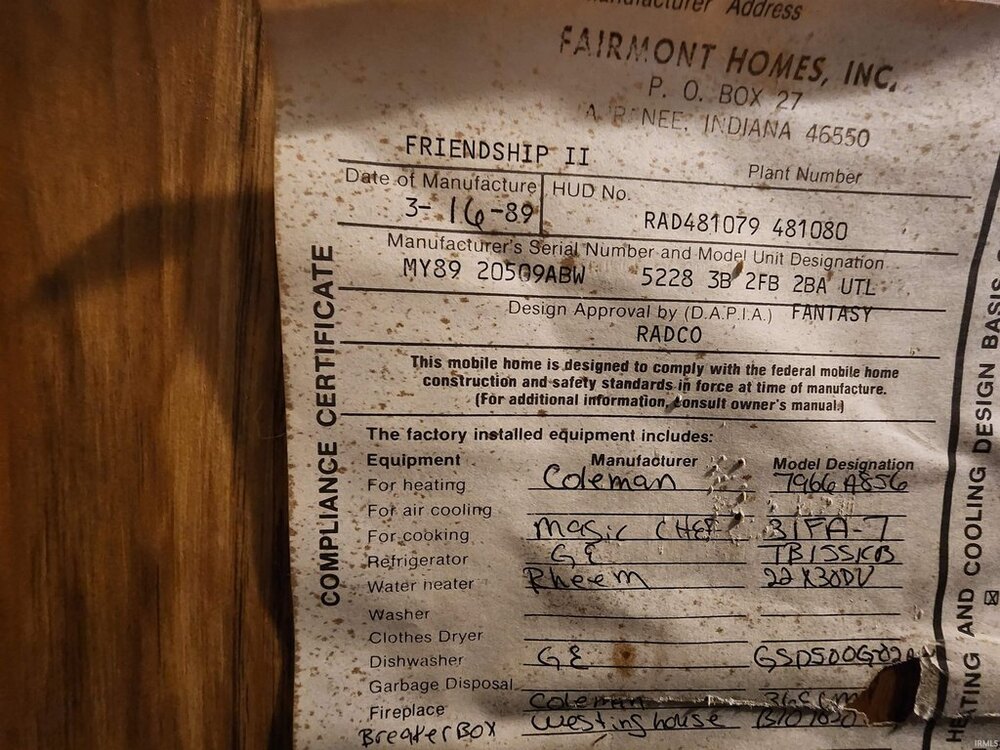 Manufacturer Address
FAIRMONT HOMES, INC.
P. O. BOX 27
INDIANA 46550
FRIENDSHIP II
Plant Number
Date of Manufacture
3-16-89
HUD No.
RAD481079 481080
Manufacturer's Serial Number and Model Unit Designation
MY89 20509ABW 5228 3B 2FB 2BA UTL
Design Approval by (D.A.P.I.A.) FANTASY
RADCO
This mobile home is designed to comply with the federal mobile home
construction and safety standards in force at time of manufacture.
(For additional information, consult owner's manual.)
The factory installed equipment includes:
Equipment Manufacturer Model Designation
For heating Coleman 7966A856
For air cooling
For cooking Magic CHEF 31FA-7
Refrigerator GE
Water heater Rheem 22X30DV
Washer
Clothes Dryer
Dishwasher GE
Garbage Disposal
Fireplace Coleman
BreakerBox Westinghouse
COMPLIANCE CERTIFICATE
HEATING AND COOLING DESIGN BASIS
IRMLS